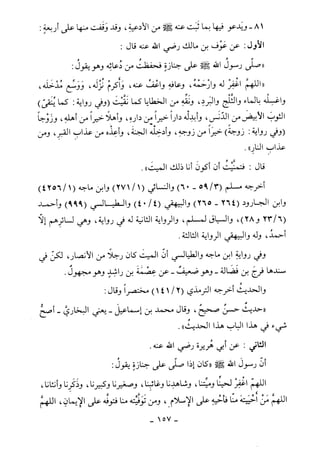 ٨١ - ويَدعو فيها بما ثَبَت عنه ﷺ من الأدعية، وقد وَقَفت منها على أربعة:
الأول: عن عَوْف بن مالك رضي الله عنه قال :
«صلّى رسولُ الله ﷺ على جنازةٍ فحفظتُ من دُعائِه وهو يقولُ:
«اللهمَّ اغْفِرْ له وارحَمْهُ، وعافِهِ واعْفُ عنه، وأكرِمْ نُزُلَه، ووَسِّع مُدْخَلَه،
واغسِلْه بالماء والثَّلْج والبَرَد، ونَقِّهِ من الخطايا كما نَقَّيتَ (وفي رواية: كما يُنَقَّى)
الثوبَ الأبيضَ من الدَّنَس، وأبدِلْه داراً خيراً من داره، وأهلاً خيراً من أهله، وزَوْجاً
(وفي رواية : زوجة) خيراً من زوجِهِ، وأدخِلْه الجنةَ، وأعِذْه من عذابِ القبر، ومن
عذابِ النارِ».
قال : فتمنَّيتُ أن أكونَ أنا ذلك الميتَ».
أخرجه مسلم (٣/ ٥٩ - ٦٠) والنسائي (١/ ٢٧١) وابن ماجه (١/ ٤٥٦)
وابن الجارود (٢٦٤ - ٢٦٥) والبيهقي (٤/ ٤٠) والطيالسي (٩٩٩) وأحمد
(٦/ ٢٣ و ٢٨)، والسياق لمسلم، والرواية الثانية له في رواية، وهي لسائرهم إلّا
أحمدَ، وله وللبيهقي الرواية الثالثة.
وفي رواية ابن ماجه والطيالسي أنَّ الميتَ كان رجلًا من الأنصار، لكنْ في
سندها فرجُ بن فَضالة - وهو ضعيف - عن عِصْمَةَ بن راشِدٍ وهو مجهول.
والحديثُ أخرجه الترمذي (٢/ ١٤١) مختصراً وقال:
«حديثٌ حسنٌ صحيحٌ، وقال محمد بن إسماعيلَ - يعني البخاريَّ - أصحُّ
شيءٍ في هذا الباب هذا الحديثُ».
الثاني : عن أبي هُريرةَ رضي الله عنه.
أنّ رسولَ الله ﷺ «كان إذا صلّى على جنازةٍ يقولُ:
اللهمّ اغْفِرْ لحيِّنا وميِّتنا، وشاهدِنا وغائبِنا، وصغيرِنا وكبيرِنا، وذَكَرِنا وأنثانا،
اللهمَّ مَنْ أَحْيَيتَه منّا فأحْيِه على الإسلامِ، ومن تَوَفَّيتَه منا فتوفَّه على الإيمانِ، اللهمَّ
- ١٥٧ -